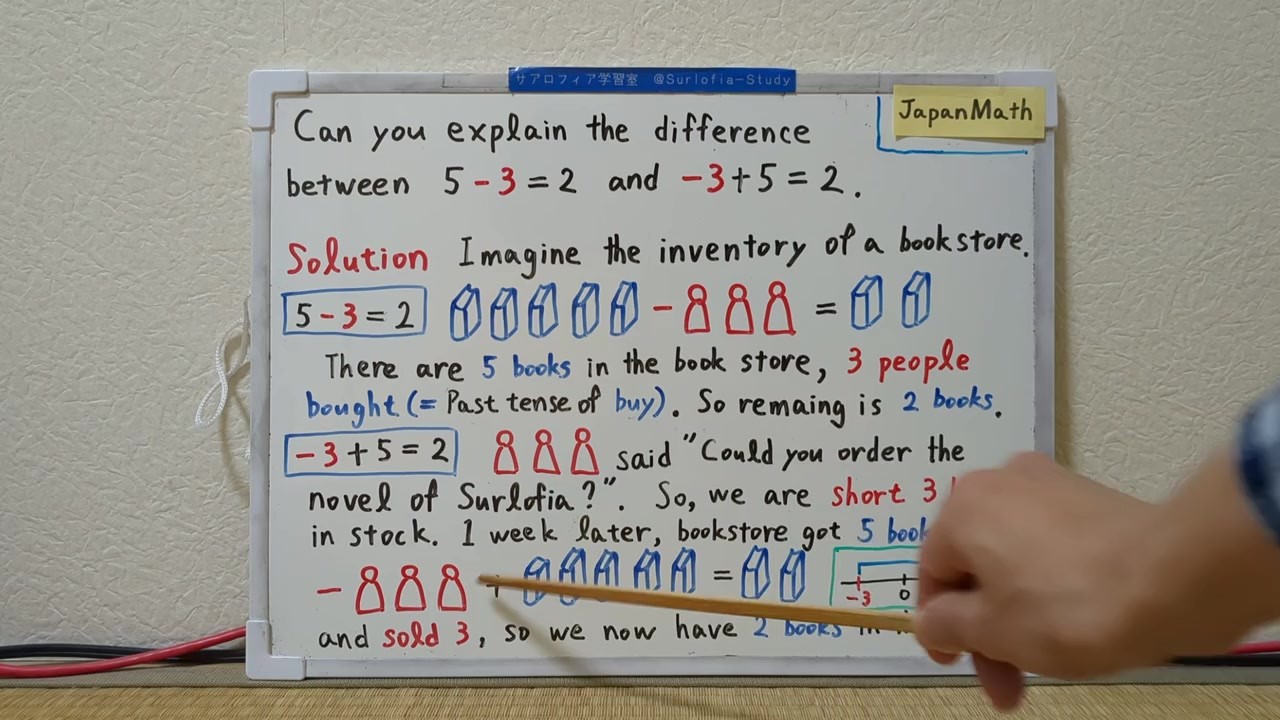 サアロフィア学習室 @Surlofia-Study
JapanMath
Can you explain the difference
between 5 - 3 = 2 and -3 + 5 = 2.
Solution Imagine the inventory of a bookstore.
5 - 3 = 2 - =
There are 5 books in the book store, 3 people
bought (= Past tense of buy). So remaing is 2 books.
-3 + 5 = 2 said "Could you order the
novel of Surlofia?". So, we are short 3
in stock. 1 week later, bookstore got 5
- + = -3 0
and sold 3, so we now have 2 books